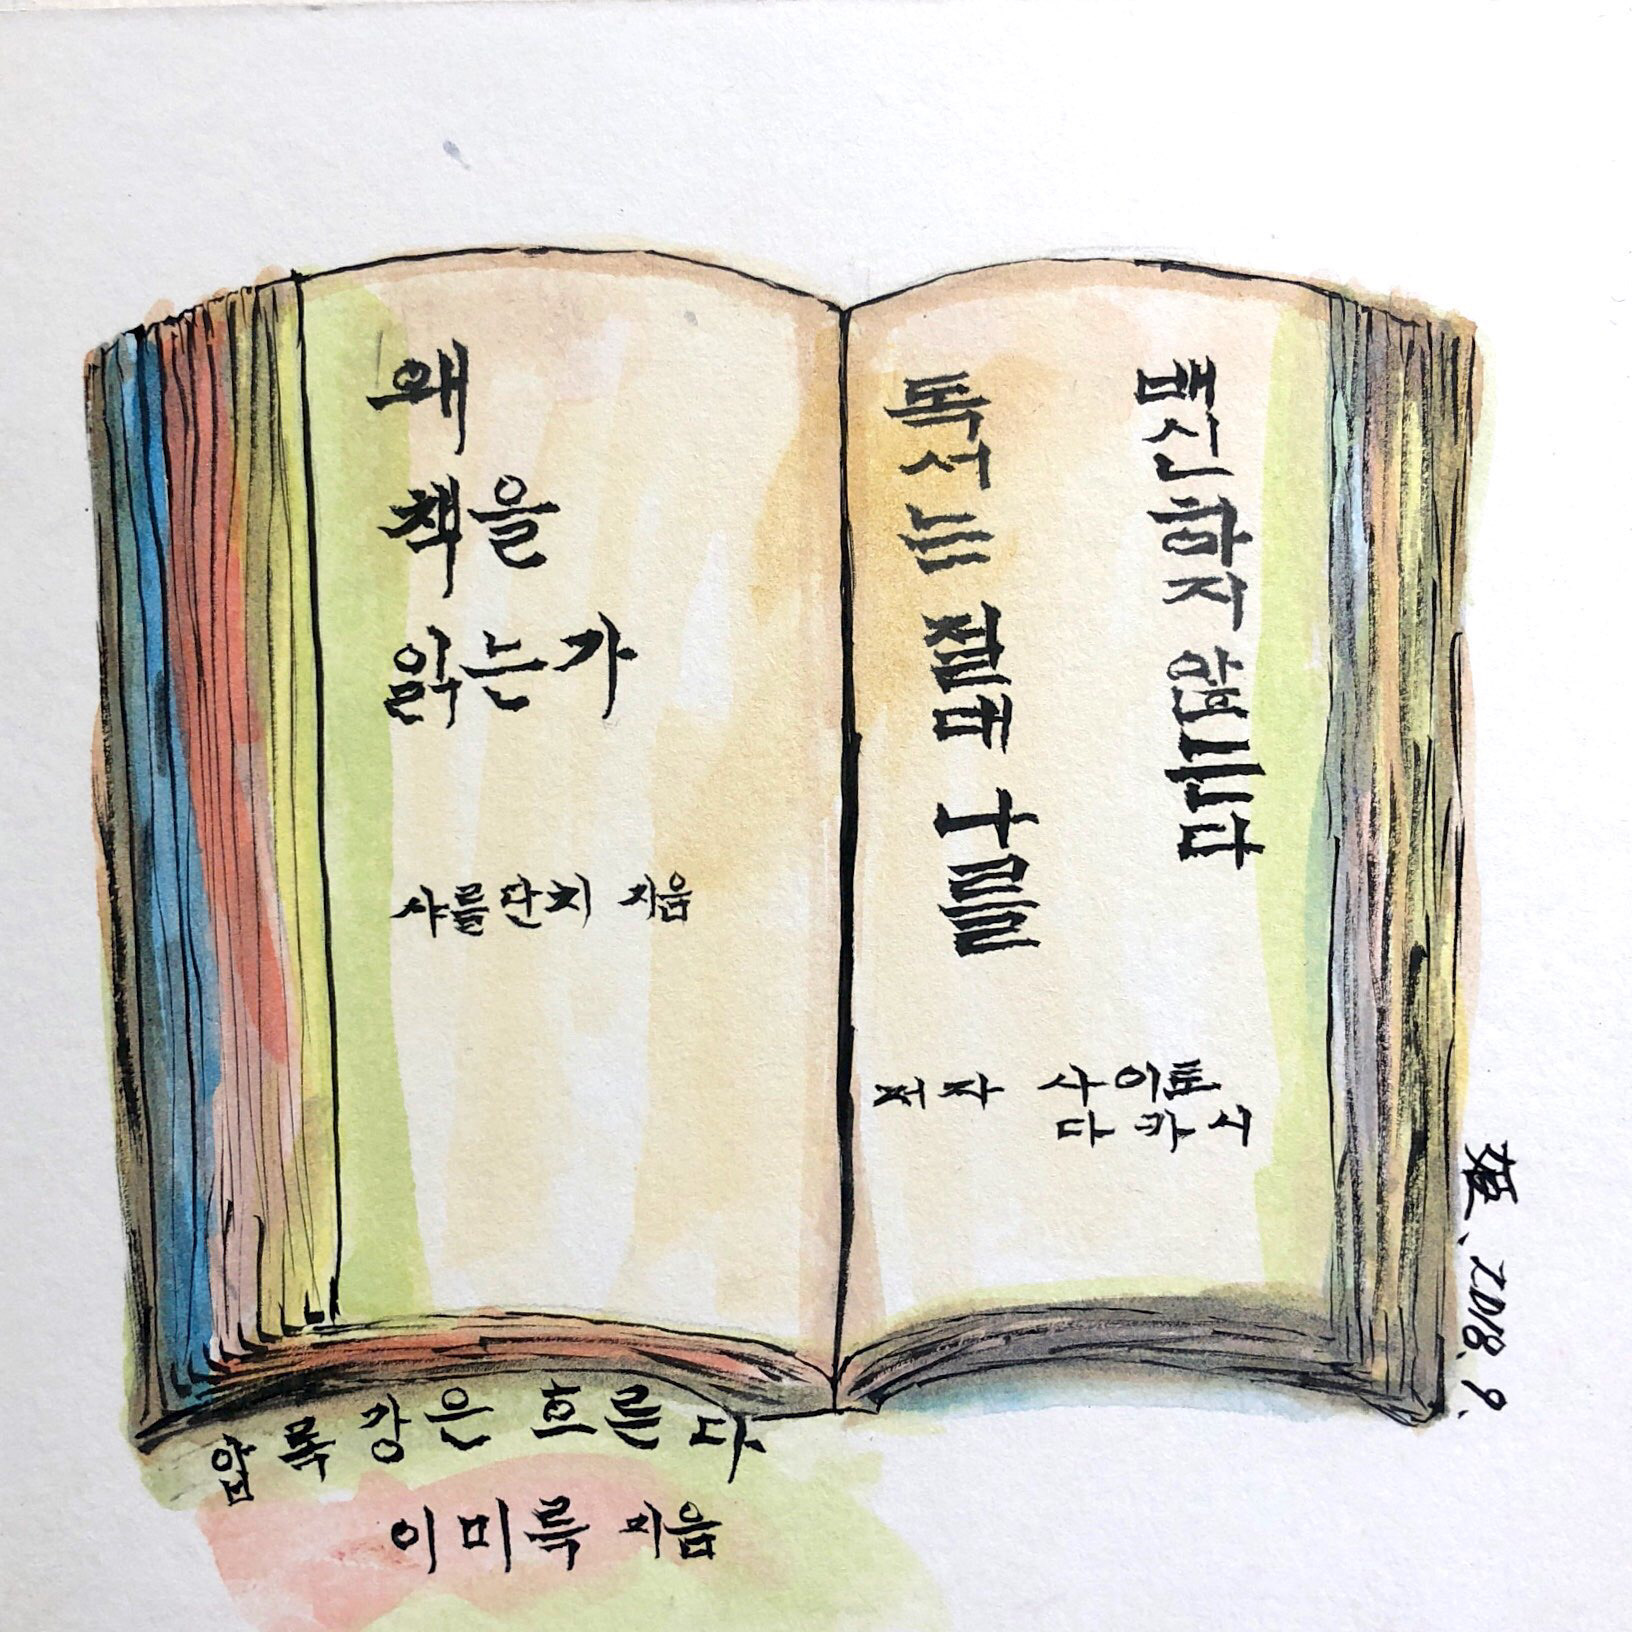 왜
책을
읽는가
샤를단치 지음
독서는 절대 나를
배신하지 않는다
저자 사이토
다카시
압록강은 흐른다
이미륵 지음
2018. 9.